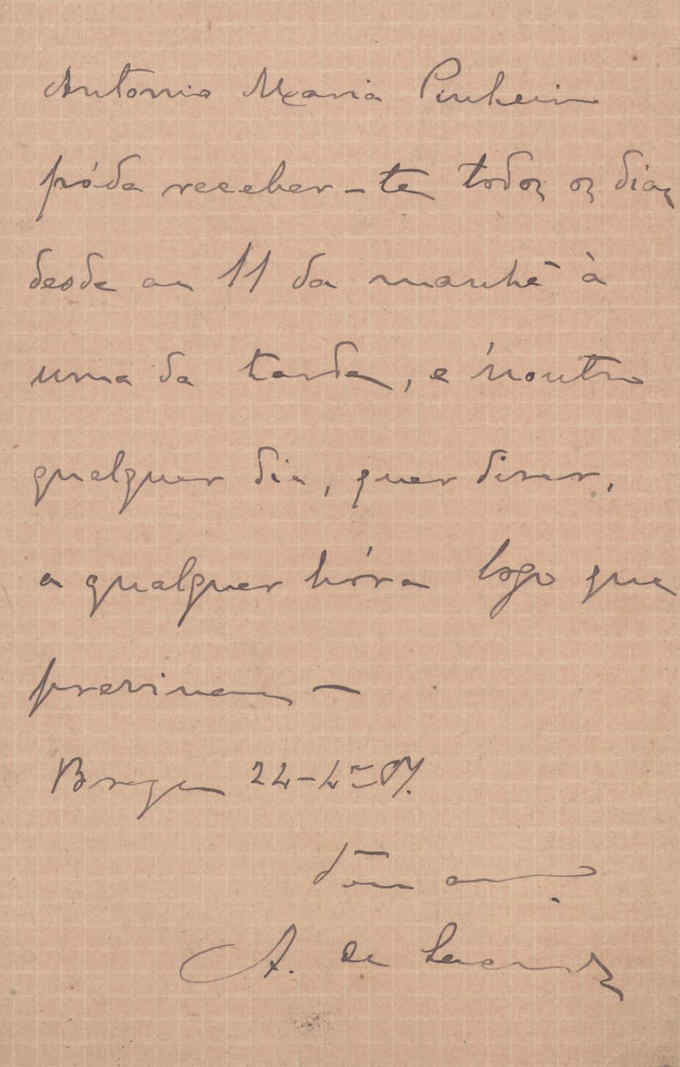 Antonio Maria Pinheiro
póde receber-te todos os dias
desde as 11 da manhã à
uma da tarde, e n'outro
qualquer dia, quer dizer,
a qualquer hóra logo que
previnam —
Braga 22-4-87.
A. de